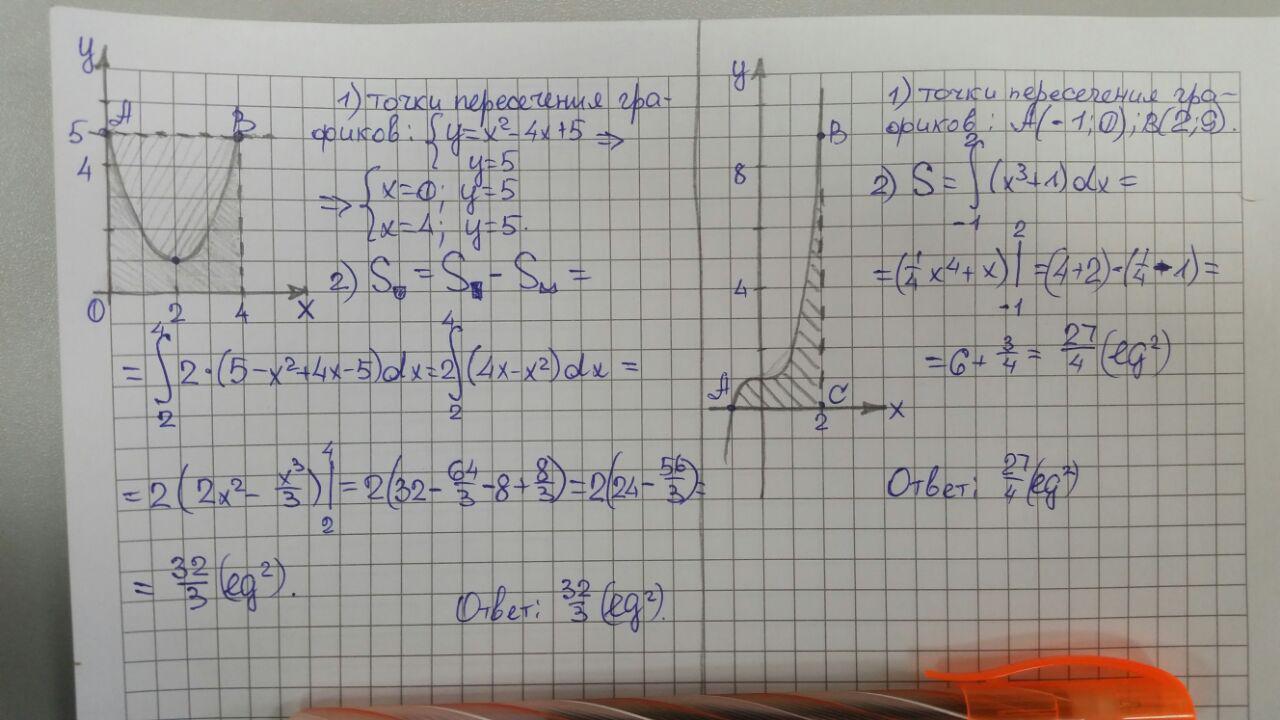 y
A
B
5
4
0
2
4
x
1) точки пересечения гра-
фиков: { y=x²-4x+5 ⇒
y=5
⇒ { x=0; y=5
x=4; y=5.
2) S = S - S =
= ∫₂⁴ 2·(5-x²+4x-5)dx = 2∫₂⁴ (4x-x²)dx =
= 2(2x² - x³/3)|₂⁴ = 2(32 - 64/3 - 8 + 8/3) = 2(24 - 56/3) =
= 32/3 (eg²).
Ответ: 32/3 (eg²).
y
B
8
4
A
C
2
x
1) точки пересечения гра-
фиков: A(-1;0); B(2;9).
2) S = ∫₋₁² (x³+1)dx =
= (1/4 x⁴ + x)|₋₁² = (4+2) - (1/4 - 1) =
= 6 + 3/4 = 27/4 (eg²)
Ответ: 27/4 (eg²)